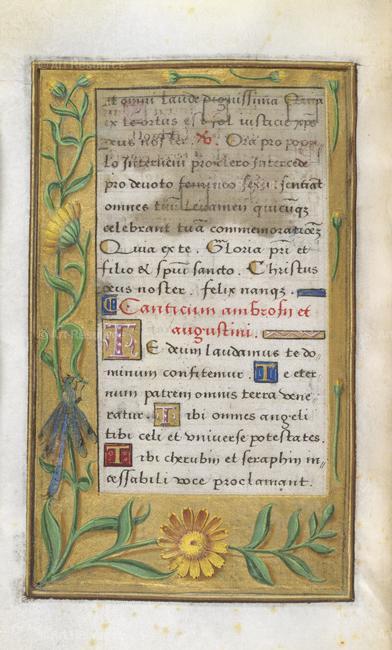 et omni laude dignissima Quia
ex te ortus est sol iusticie xps
deus noster. Ora pro popu-
lo Interueni pro clero Intercede
pro deuoto femineo sexu: sentiant
omnes tuū leuamen quicūqz
celebrant tuā commemorationez
Quia ex te. Gloria pri et
filio & spui sancto. Christus
deus noster. felix nanqz.
Canticum ambrosii et
augustini.
Te deum laudamus te do-
minum confitemur. Te eter
num patrem omnis terra vene
ratur. Tibi omnes angeli
tibi celi et vniuerse potestates.
Tibi cherubin et seraphin in-
cessabili voce proclamant.